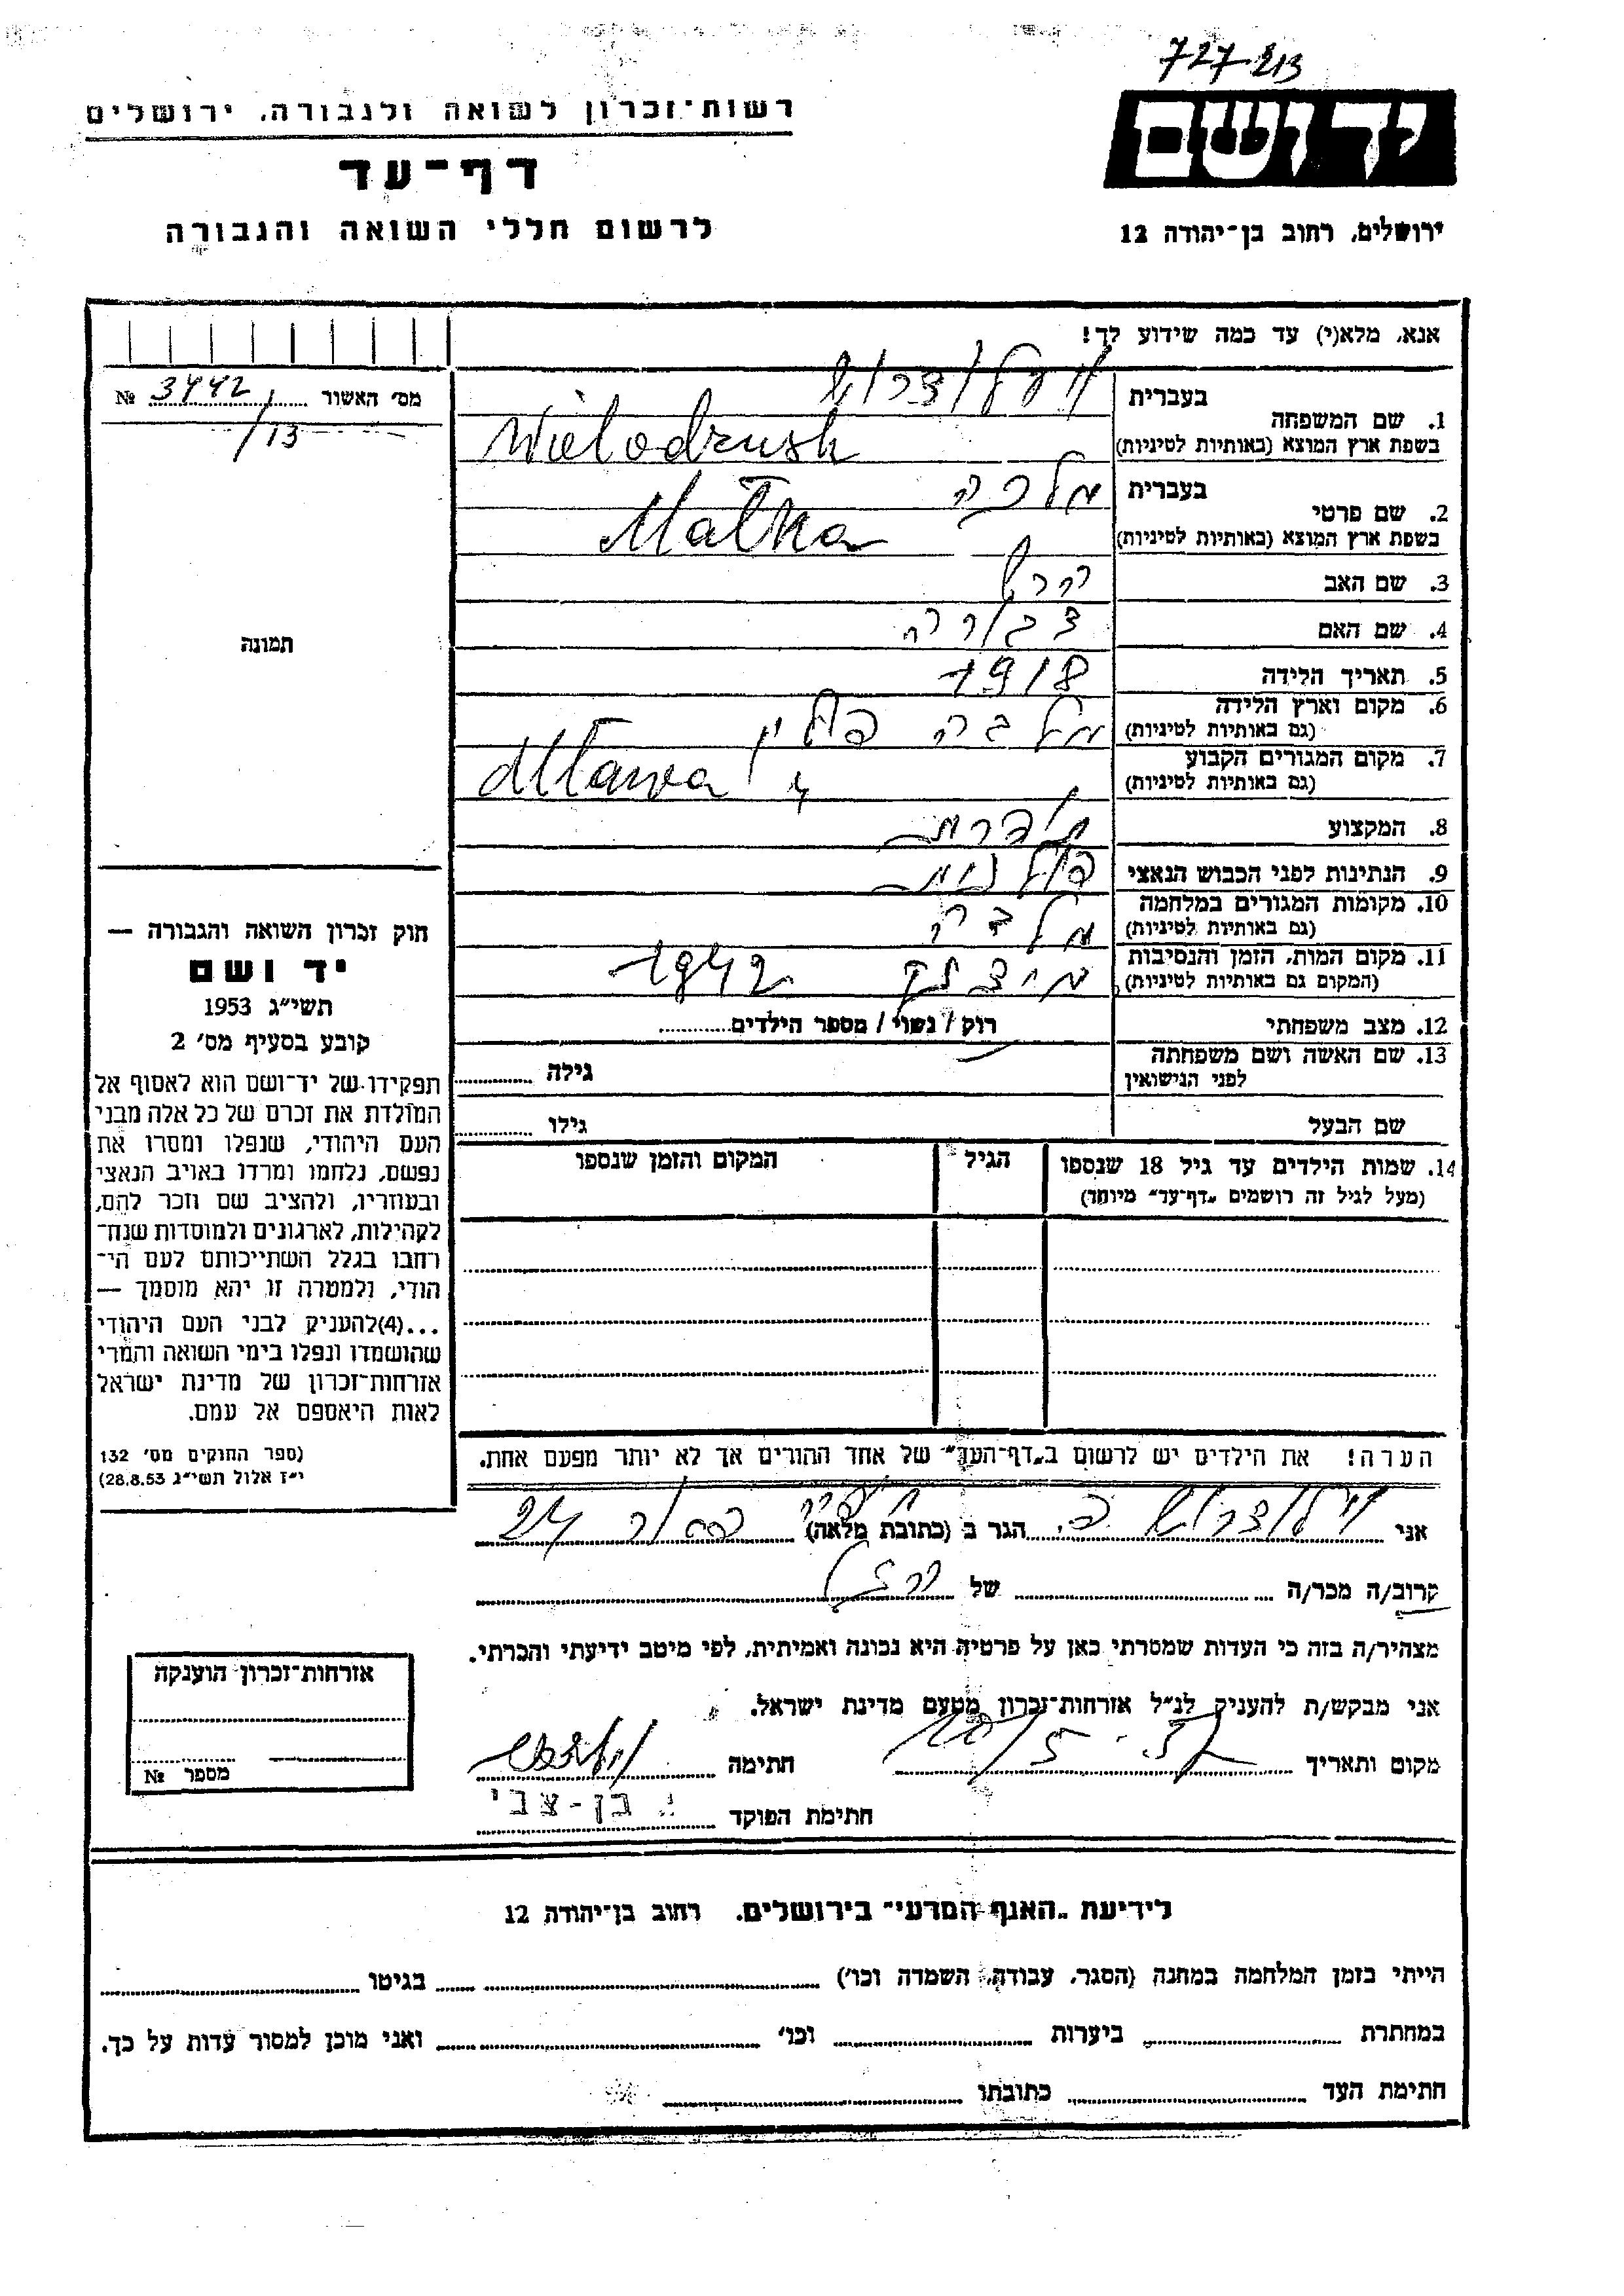 727-213
ידושם
רשות־זכרון לשואה ולגבורה, ירושלים
דף־עד
לרשום חללי השואה והגבורה
ירושלים, רחוב בן־יהודה 12
אנא, מלא(י) עד כמה שידוע לך!
מס׳ האשור 3442 №
/13
תמונה
חוק זכרון השואה והגבורה —
יד ושם
תשי״ג 1953
קובע בסעיף מס׳ 2
תפקידו של יד־ושם הוא לאסוף אל
המולדת את זכרם של כל אלה מבני
העם היהודי, שנפלו ומסרו את
נפשם, נלחמו ומרדו באויב הנאצי
ובעוזריו, ולהציב שם וזכר להם,
לקהילות, לארגונים ולמוסדות שנח־
רחבו בגלל השתייכותם לעם הי־
הודי, ולמטרה זו יהא מוסמך —
...(4)להעניק לבני העם היהודי
שהושמדו ונפלו בימי השואה והמרי
אזרחות־זכרון של מדינת ישראל
לאות היאספם אל עמם.
(ספר החוקים מס׳ 132
י״ז אלול תשי״ג 28.8.53)
1. שם המשפחה
בעברית
בשפת ארץ המוצא (באותיות לטיניות) Wielodrush
2. שם פרטי
בעברית מלכה
בשפת ארץ המוצא (באותיות לטיניות) Małka
3. שם האב הרש
4. שם האם דבורה
5. תאריך הלידה 1918
6. מקום וארץ הלידה מלבה פולין
(גם באותיות לטיניות)
7. מקום המגורים הקבוע Mława
(גם באותיות לטיניות)
8. המקצוע תופרת
9. הנתינות לפני הכבוש הנאצי פולנית
10. מקומות המגורים במלחמה מלבה
(גם באותיות לטיניות)
11. מקום המות, הזמן והנסיבות 1942
(המקום גם באותיות לטיניות)
12. מצב משפחתי רוק / נשוי / מספר הילדים
13. שם האשה ושם משפחתה גילה
לפני הנישואין
שם הבעל גילו
14. שמות הילדים עד גיל 18 שנספו הגיל המקום והזמן שנספו
(מעל לגיל זה רושמים „דף־עד״ מיוחד)
הערה! את הילדים יש לרשום ב„דף־העד״ של אחד ההורים אך לא יותר מפעם אחת.
אני הגר ב (כתובת מלאה) 24
קרוב/ה מכר/ה של
מצהיר/ה בזה כי העדות שמסרתי כאן על פרטיה היא נכונה ואמיתית, לפי מיטב ידיעתי והכרתי.
אני מבקש/ת להעניק לנ״ל אזרחות־זכרון מטעם מדינת ישראל.
מקום ותאריך חתימה
חתימת הפוקד בן-צבי
אזרחות־זכרון הוענקה
מספר №
לידיעת „האגף המדעי״ בירושלים, רחוב בן־יהודה 12
הייתי בזמן המלחמה במחנה (הסגר, עבודה, השמדה וכו׳) בגיטו
במחתרת ביערות וכו׳ ואני מוכן למסור עדות על כך.
חתימת העד כתובתו